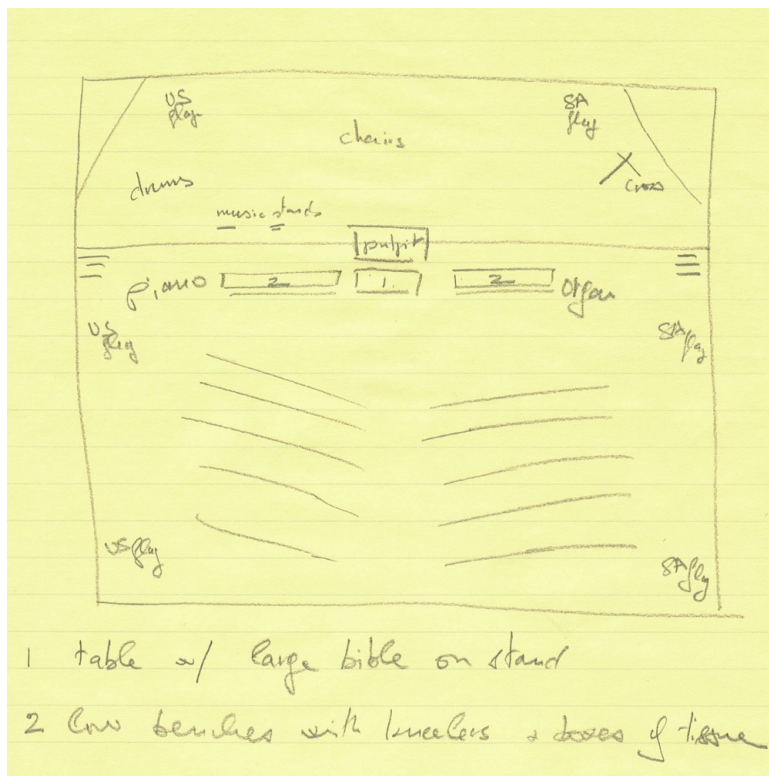 US
flag
SA
flag
chairs
drums
cross
music stands
pulpit
piano
2
1.
2
organ
US
flag
SA flag
US flag
SA flag
1 table w/ large bible on stand
2 low benches with kneelers + boxes of tissue